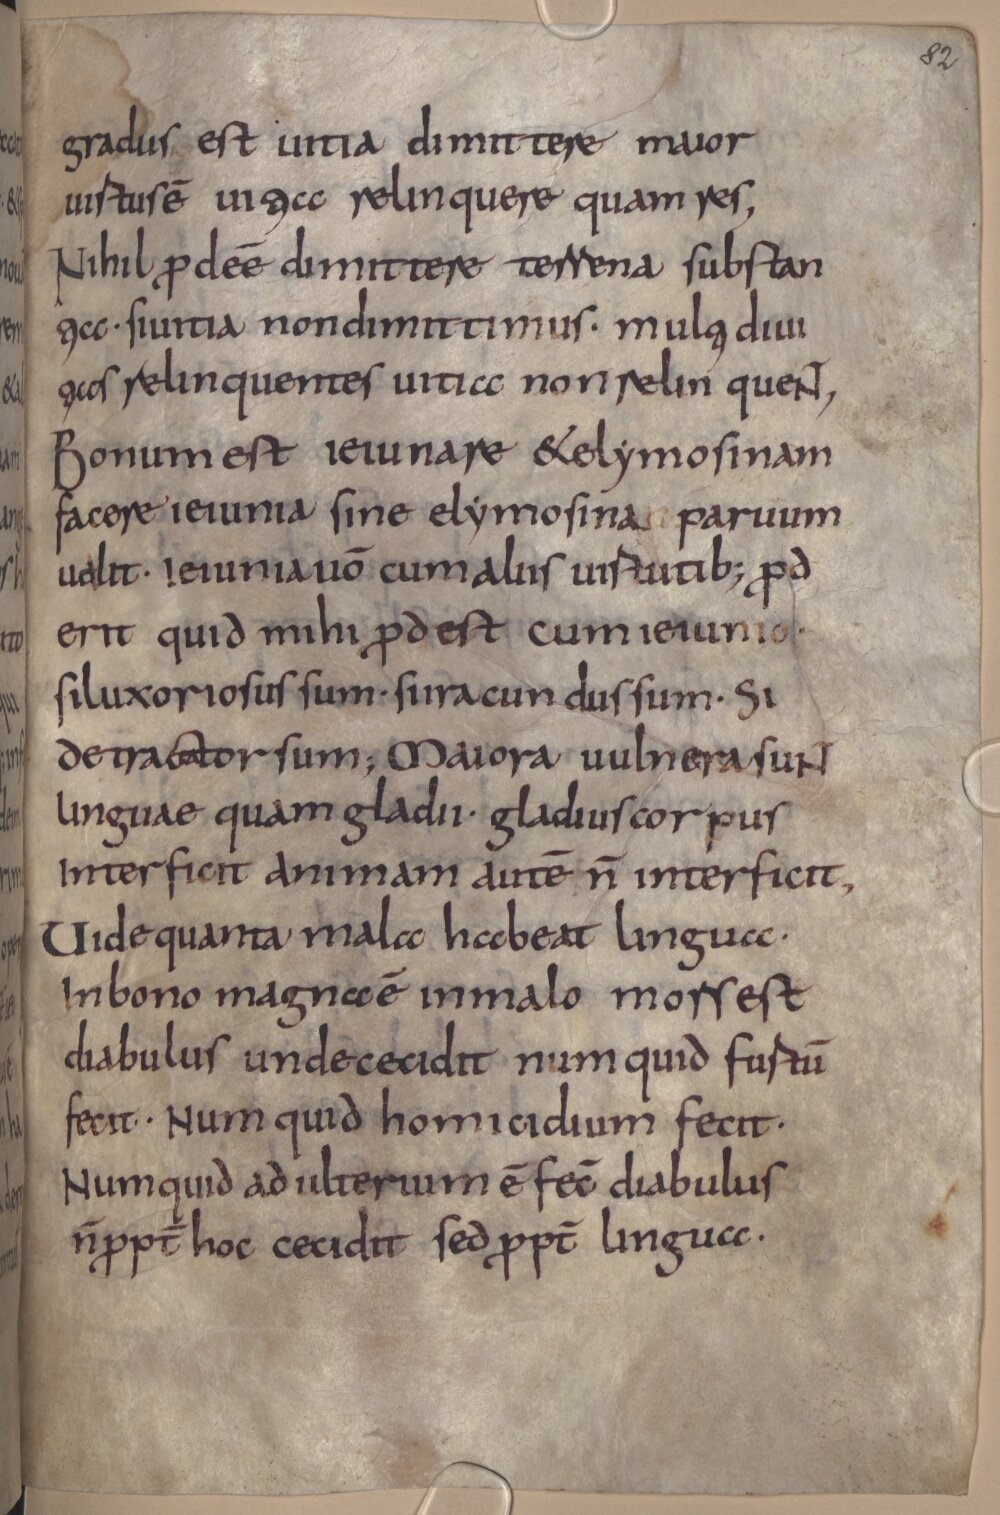 82
gradus est uitia dimittere maior
uirtusē uitia relinquere quam res,
Nihil ꝓdeē dimittere terrena substan
tia· siuitia nondimittimus· multi diui
tias relinquentes uitia non relin queNt,
Bonum est ieiunare &elẏmosinam
facere ieiunia sine elẏmosina paruum
ualit· Ieiunia uō cum aliis uirtutib; ꝓd
erit quid mihi ꝓdest cum ieiunio·
siluxoriosus sum· siiracundus sum· Si
detractator sum; Maiora uulnera suNt
linguae quam gladii· gladius corpus
interficit animam autē n̄ interficit,
Uide quanta mala habeat lingua·
In bono magnaē inmalo morsest
diabulus unde cecidit numquid furtū
fecit· Numquid homicidium fecit·
Numquid adulterium ē fec̄ diabulus
n̄ ꝓpt̄ hoc cecidit sed ꝓpt̄ lingua·